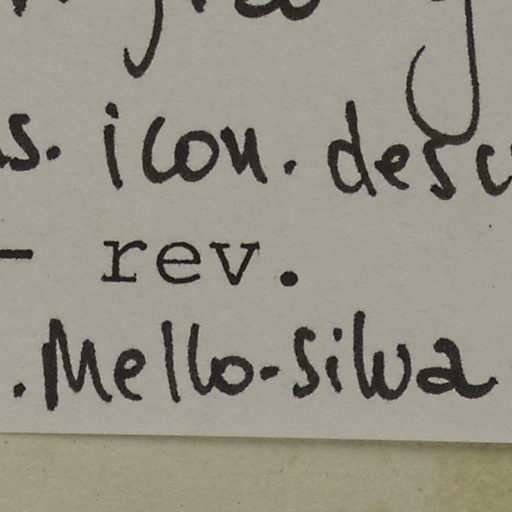 s. icon. desc
- rev.
. Mello-Silva